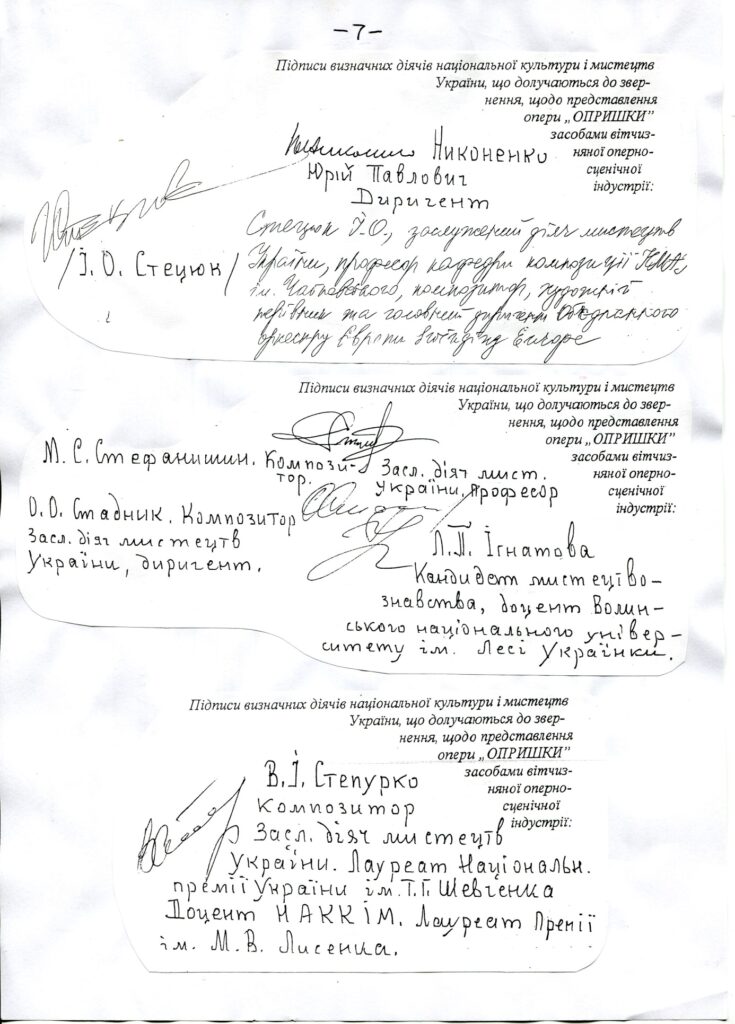 -7-
Підписи визначних діячів національної культури і мистецтв
України, що долучаються до звер-
нення, щодо представлення
опери „ОПРИШКИ”
засобами вітчиз-
няної оперно-
сценічної
індустрії:
Никоненко
Юрій Павлович
Диригент
/І. О. Стецюк/
Стецюк І.О., заслужений діяч мистецтв
України, професор кафедри композиції НМАУ
ім. Чайковського, композитор, художній
керівник та головний диригент
оркестру Європи Swinging Europe
Підписи визначних діячів національної культури і мистецтв
України, що долучаються до звер-
нення, щодо представлення
опери „ОПРИШКИ”
засобами вітчиз-
няної оперно-
сценічної
індустрії:
М. С. Стефанишин. Компози-
тор.
Засл. діяч мист.
України, професор
О. О. Стадник. Композитор
Засл. діяч мистецтв
України, диригент.
Л.П. Ігнатова
Кандидат мистецтво-
знавства, доцент Волин-
ського національного універ-
ситету ім. Лесі Українки.
Підписи визначних діячів національної культури і мистецтв
України, що долучаються до звер-
нення, щодо представлення
опери „ОПРИШКИ”
засобами вітчиз-
няної оперно-
сценічної
індустрії:
В.І. Степурко
Композитор
Засл. діяч мистецтв
України. Лауреат Національн.
премії України ім. Т.Г. Шевченка
Доцент НАККІМ. Лауреат Премії
ім. М.В. Лисенка.